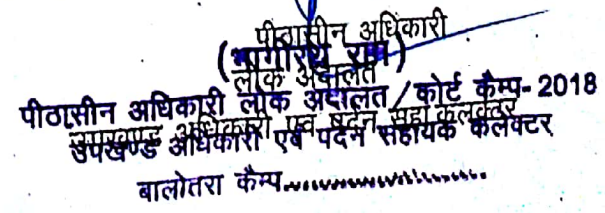 पीठासीन अधिकारी
(भागीरथ राम)
लोक अदालत
पीठासीन अधिकारी लोक अदालत/कोर्ट कैम्प-2018
उपखण्ड अधिकारी एवं पदेन सहायक कलेक्टर
उपखण्ड अधिकारी एवं पदेन सहायक कलेक्टर
बालोतरा कैम्प..................